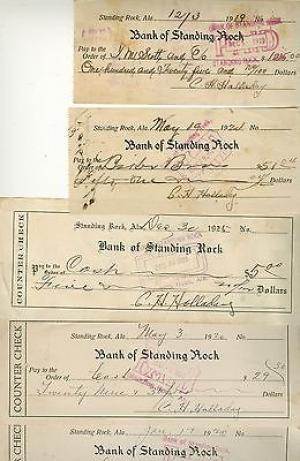 Standing Rock, Ala. 12/3 1919 No.
BANK OF STANDING ROCK
Bank of Standing Rock
PAID
Pay to the
Order of J. M. Scott and Co $125.00
One hundred and Twenty five and no/100 Dollars
C. H. Halladay
Standing Rock, Ala. May 19 192 No.
Bank of Standing Rock
Pay to the
Order of Bros $51.
Fifty one Dollars
C. H. Halladay
COUNTER CHECK
Standing Rock, Ala. Dec 30 192 No.
Bank of Standing Rock
Pay to the
Order of Cash $5.00
Five Dollars
C. H. Halladay
COUNTER CHECK
Standing Rock, Ala. May 3 192 No.
Bank of Standing Rock
Pay to the
Order of Cash $29
Twenty Nine & Dollars
C. H. Halladay
Standing Rock, Ala. No.
BANK OF STANDING ROCK
Bank of Standing Rock